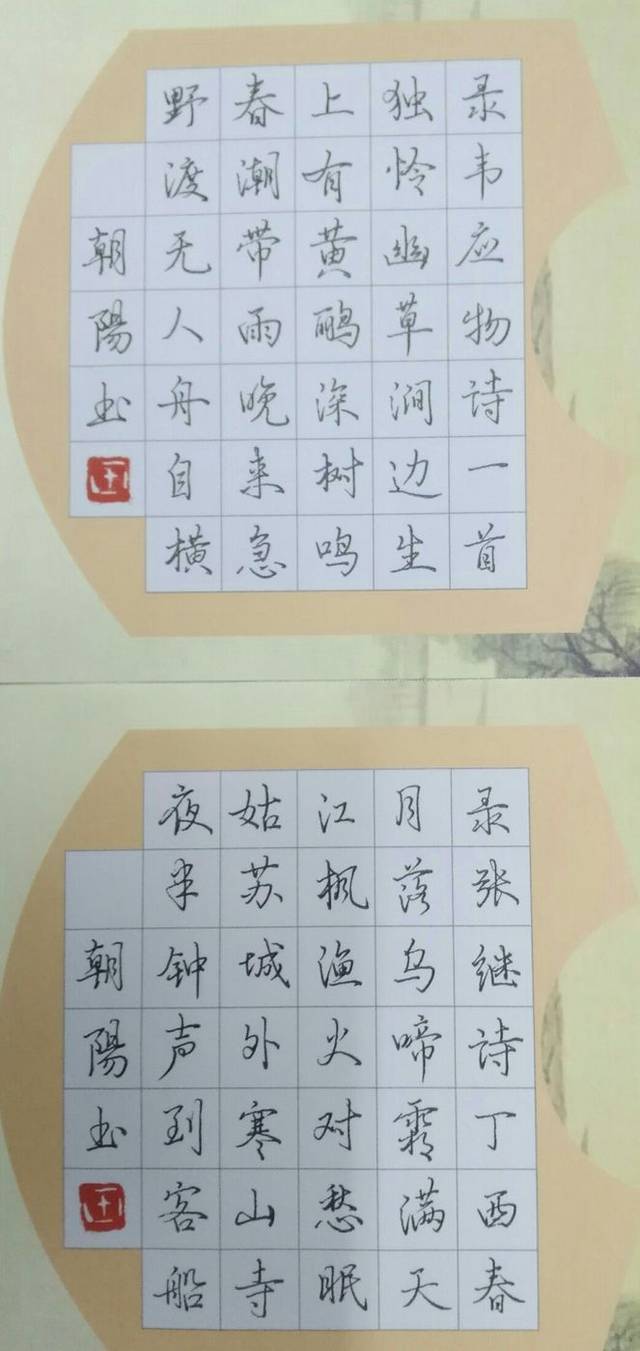 录韦应物诗一首
独怜幽草涧边生
上有黄鹂深树鸣
春潮带雨晚来急
野渡无人舟自横
朝陽书
录张继诗丁酉春
月落乌啼霜满天
江枫渔火对愁眠
姑苏城外寒山寺
夜半钟声到客船
朝陽书